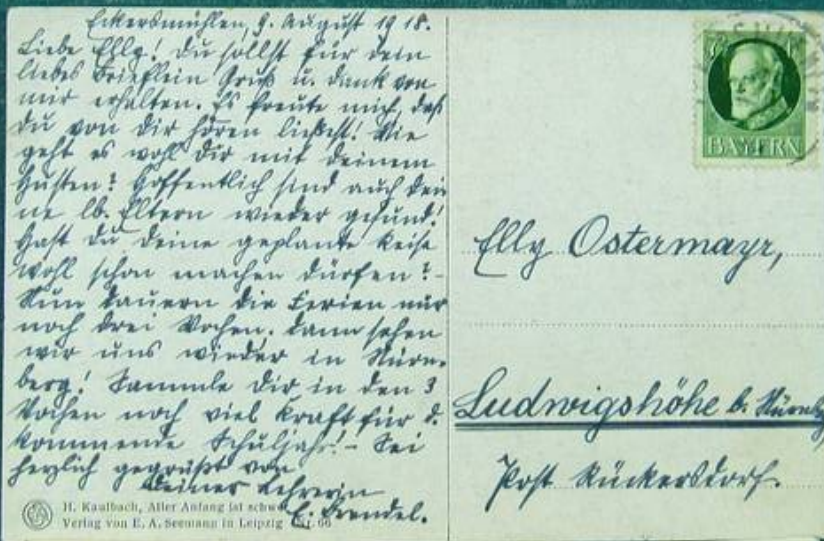 Eckersmühlen, 9. August 1918.
Liebe Elly! Du sollst für dein
liebes Brieflein Gruß u. Dank von
mir erhalten. Es freute mich, daß
du von dir hören ließest! Wie
geht es wohl dir mit deinem
Husten? Hoffentlich sind auch dei
ne lb. Eltern wieder gesund!
Hast du deine geplante Reise
wohl schon machen dürfen? -
Nun dauern die Ferien nur
noch drei Wochen. Dann sehen
wir uns wieder in Nürn-
berg! Sammle dir in den 3
Wochen noch viel Kraft für d.
kommende Schuljahr! - Sei
herzlich gegrüßt von
deiner Lehrerin
H. Kaulbach, Aller Anfang ist schwer
Verlag von E. A. Seemann in Leipzig Nr. 66
BAYERN
Elly Ostermayr,
Ludwigshöhe b. Nürnbg
Post Rückersdorf.